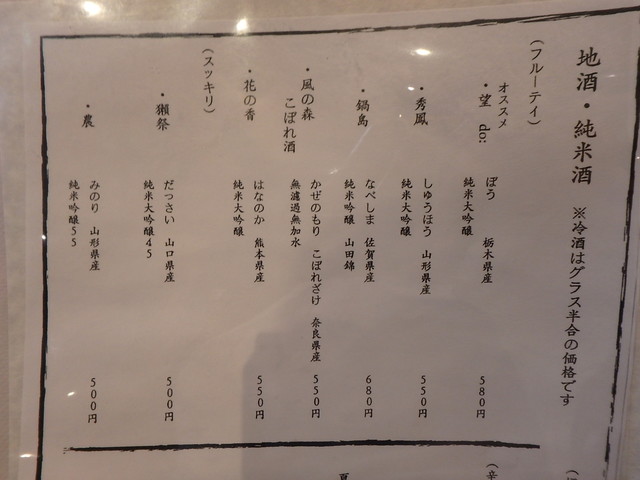 地酒・純米酒 ※冷酒はグラス半合の価格です
(フルーティ)
オススメ
・望 do: ぼう 栃木県産
純米大吟醸 580円
・秀鳳 しゅうほう 山形県産
純米大吟醸 550円
・鍋島 なべしま 佐賀県産
純米吟醸 山田錦 680円
・風の森 かぜのもり こぼれざけ 奈良県産
こぼれ酒 無濾過無加水 550円
・花の香 はなのか 熊本県産
純米大吟醸 550円
(スッキリ)
・獺祭 だっさい 山口県産
純米大吟醸45 500円
・農 みのり 山形県産
純米吟醸55 500円